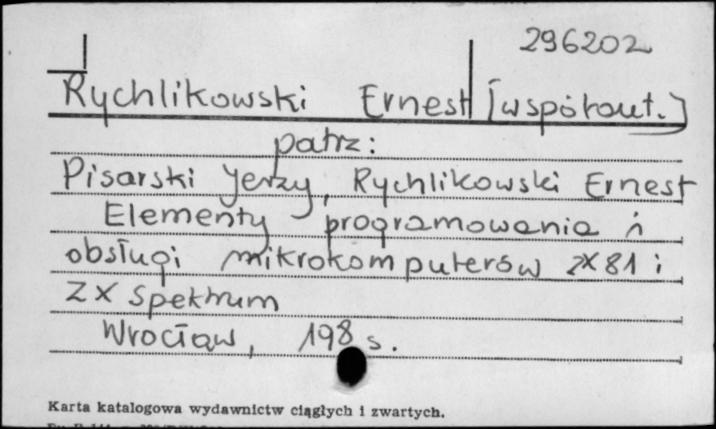 296202
Rychlikowski Ernest [współaut.]
patrz:
Pisarski Jerzy, Rychlikowski Ernest
Elementy programowania i
obsługi mikrokomputerów ZX81 i
ZX Spektrum
Wrocław, 198 s.
Karta katalogowa wydawnictw ciągłych i zwartych.